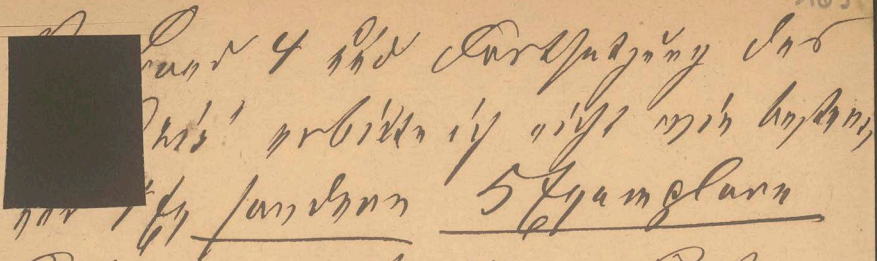 Band 4 und Fortsetzung des
erbitte ich nicht wie bestellt
nur 1 Ex sondern 5 Exemplare